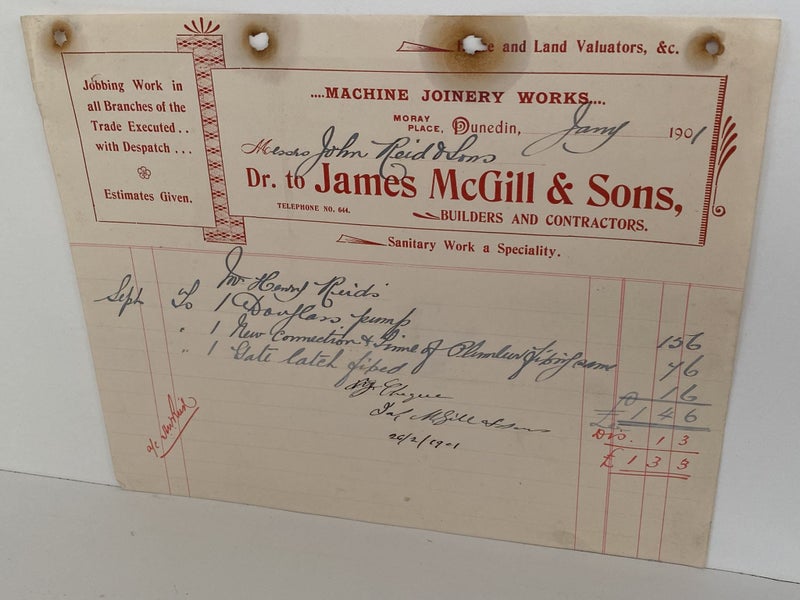 and Land Valuators, &c.
Jobbing Work in
all Branches of the
Trade Executed..
with Despatch...
Estimates Given.
....MACHINE JOINERY WORKS....
MORAY
PLACE, Dunedin, Jany 1901
Messrs John Reid & Sons
Dr. to James McGill & Sons,
TELEPHONE NO. 644.
BUILDERS AND CONTRACTORS.
Sanitary Work a Speciality.
Mr Henry Reid's
Sept To 1 Douglass pump 15 6
" 1 New Connection & Time of Plumber fixing same 7 6
" 1 Gate latch fixed 1 6
£ 1 4 6
By Cheque
Jas McGill & Sons
Dis. 1 3
26/2/1901
£ 1 3 3
a/c